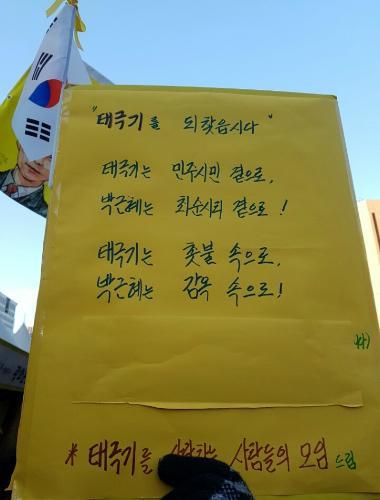 "태극기를 되찾읍시다"
태극기는 민주시민 곁으로,
박근혜는 최순시리 곁으로!
태극기는 촛불 속으로,
박근혜는 감옥 속으로!
* 태극기를 사랑하는 사람들의 모임 드림